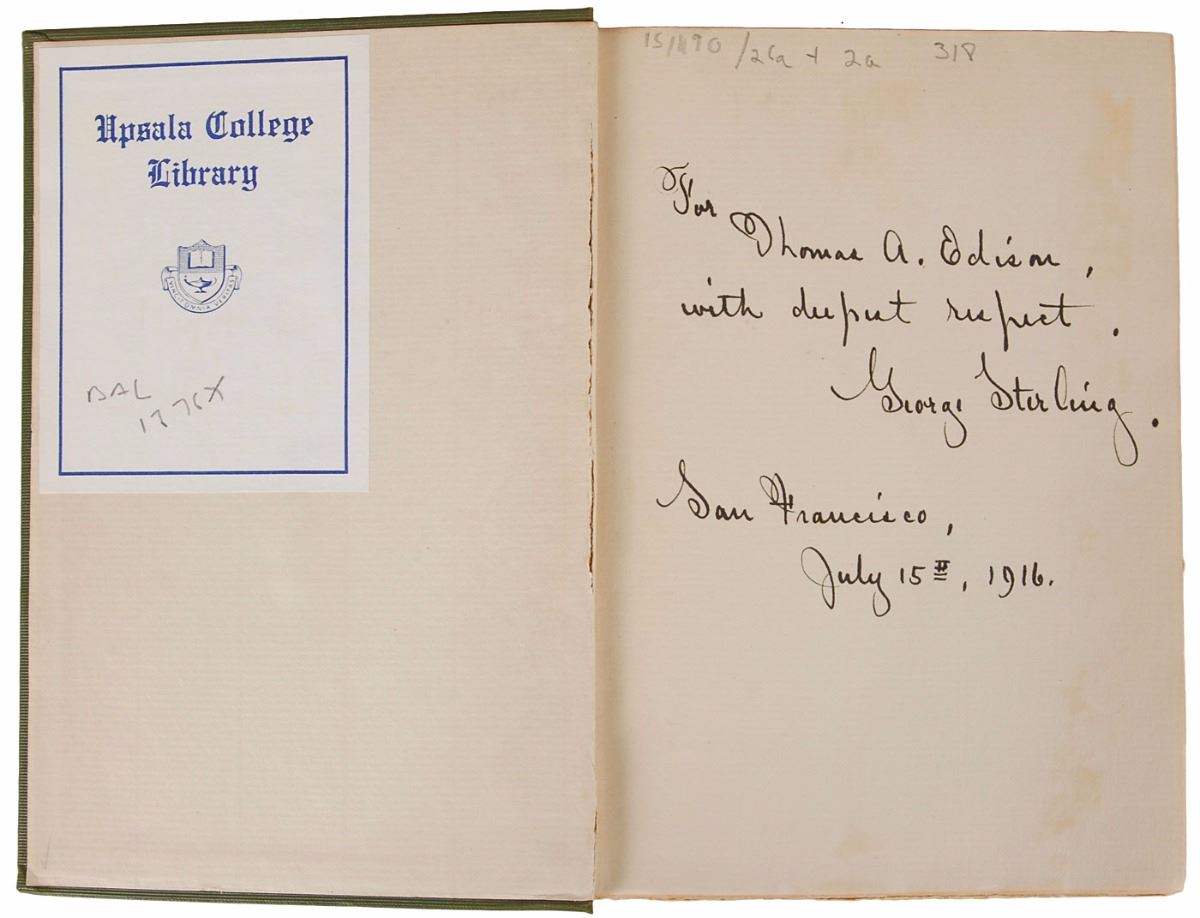 Upsala College
Library
VINCIT OMNIA VERITAS
BAL
15/1190 /26a + 2a 318
For
Thomas A. Edison,
with deepest respect.
George Sterling.
San Francisco,
July 15th, 1916.